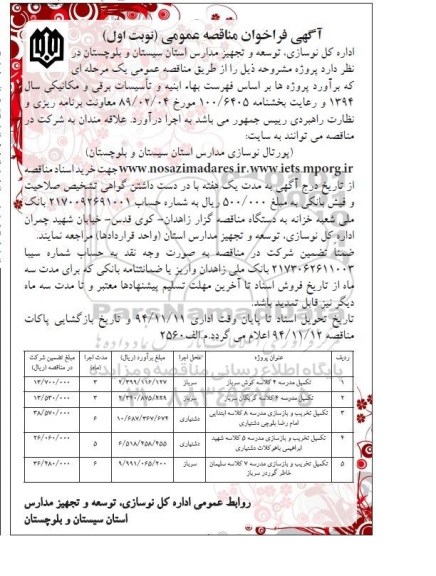 آگهی فراخوان مناقصه عمومی (نوبت اول)
اداره کل نوسازی، توسعه و تجهیز مدارس استان سیستان و بلوچستان در
نظر دارد پروژه مشروحه ذیل را از طریق مناقصه عمومی یک مرحله ای
که برآورد پروژه ها بر اساس فهرست بهاء ابنیه و تأسیسات برقی و مکانیکی سال
۱۳۹۴ و رعایت بخشنامه ۱۰۰/۶۴۰۵ مورخ ۸۹/۰۲/۰۴ معاونت برنامه ریزی و
نظارت راهبردی رییس جمهور می باشد به اجرا درآورد. علاقه مندان به شرکت در
مناقصه می توانند به سایت:
(پورتال نوسازی مدارس استان سیستان و بلوچستان)
www.nosazimadares.ir.www.iets.mporg.ir جهت خرید اسناد مناقصه
از تاریخ درج آگهی به مدت یک هفته با در دست داشتن گواهی تشخیص صلاحیت
و فیش بانکی به مبلغ ۵۰۰/۰۰۰ ریال به شماره حساب ۲۱۷۰۰۹۲۶۹۱۰۰۱ بانک
ملی شعبه خزانه به دستگاه مناقصه گزار زاهدان- کوی قدس- خیابان شهید چمران
اداره کل نوسازی، توسعه و تجهیز مدارس استان (واحد قراردادها) مراجعه نمایند.
ضمنا تضمین شرکت در مناقصه به صورت وجه نقد به حساب شماره سیبا
۲۱۷۳۰۶۲۶۱۱۰۰۳ بانک ملی زاهدان واریز یا ضمانتنامه بانکی که برای مدت سه
ماه از تاریخ فروش اسناد تا آخرین مهلت تسلیم پیشنهادها معتبر و تا مدت سه ماه
دیگر نیز قابل تمدید باشد.
تاریخ تحویل اسناد تا پایان وقت اداری ۹۴/۱۱/۱۱ و تاریخ بازگشایی پاکات
مناقصه ۹۴/۱۱/۱۲ اعلام می گردد.م الف۲۵۶۰
ردیف عنوان پروژه محل اجرا مبلغ برآورد (ریال) مدت اجرا (ماه) مبلغ تضمین شرکت در مناقصه (ریال)
۱ تکمیل مدرسه ۴ کلاسه کوش سرباز سرباز ۲/۳۹۹/۱۱۶/۱۲۷ ۳ ۱۳/۷۰۰/۰۰۰
۲ تکمیل مدرسه ۴ کلاسه سرباز سرباز ۳ ۱۳/۵۳۰/۰۰۰
۳ تکمیل تخریب و بازسازی مدرسه ۸ کلاسه ابتدایی امام رضا بلوچی دشتیاری دشتیاری ۱۰/۶۸۷/۳۶۷/۶۷۴ ۶ ۳۸/۵۷۰/۰۰۰
۴ تکمیل تخریب و بازسازی مدرسه ۵ کلاسه شهید ابراهیمی باهوکلات دشتیاری دشتیاری ۶/۵۱۸/۴۵۸/۴۵۵ ۵ ۲۶/۰۶۰/۰۰۰
۵ تکمیل تخریب و بازسازی مدرسه ۷ کلاسه سلیمان خاطر گوردر سرباز سرباز ۹/۹۹۱/۰۶۵/۲۰۰ ۶ ۳۶/۴۸۰/۰۰۰
روابط عمومی اداره کل نوسازی، توسعه و تجهیز مدارس
استان سیستان و بلوچستان